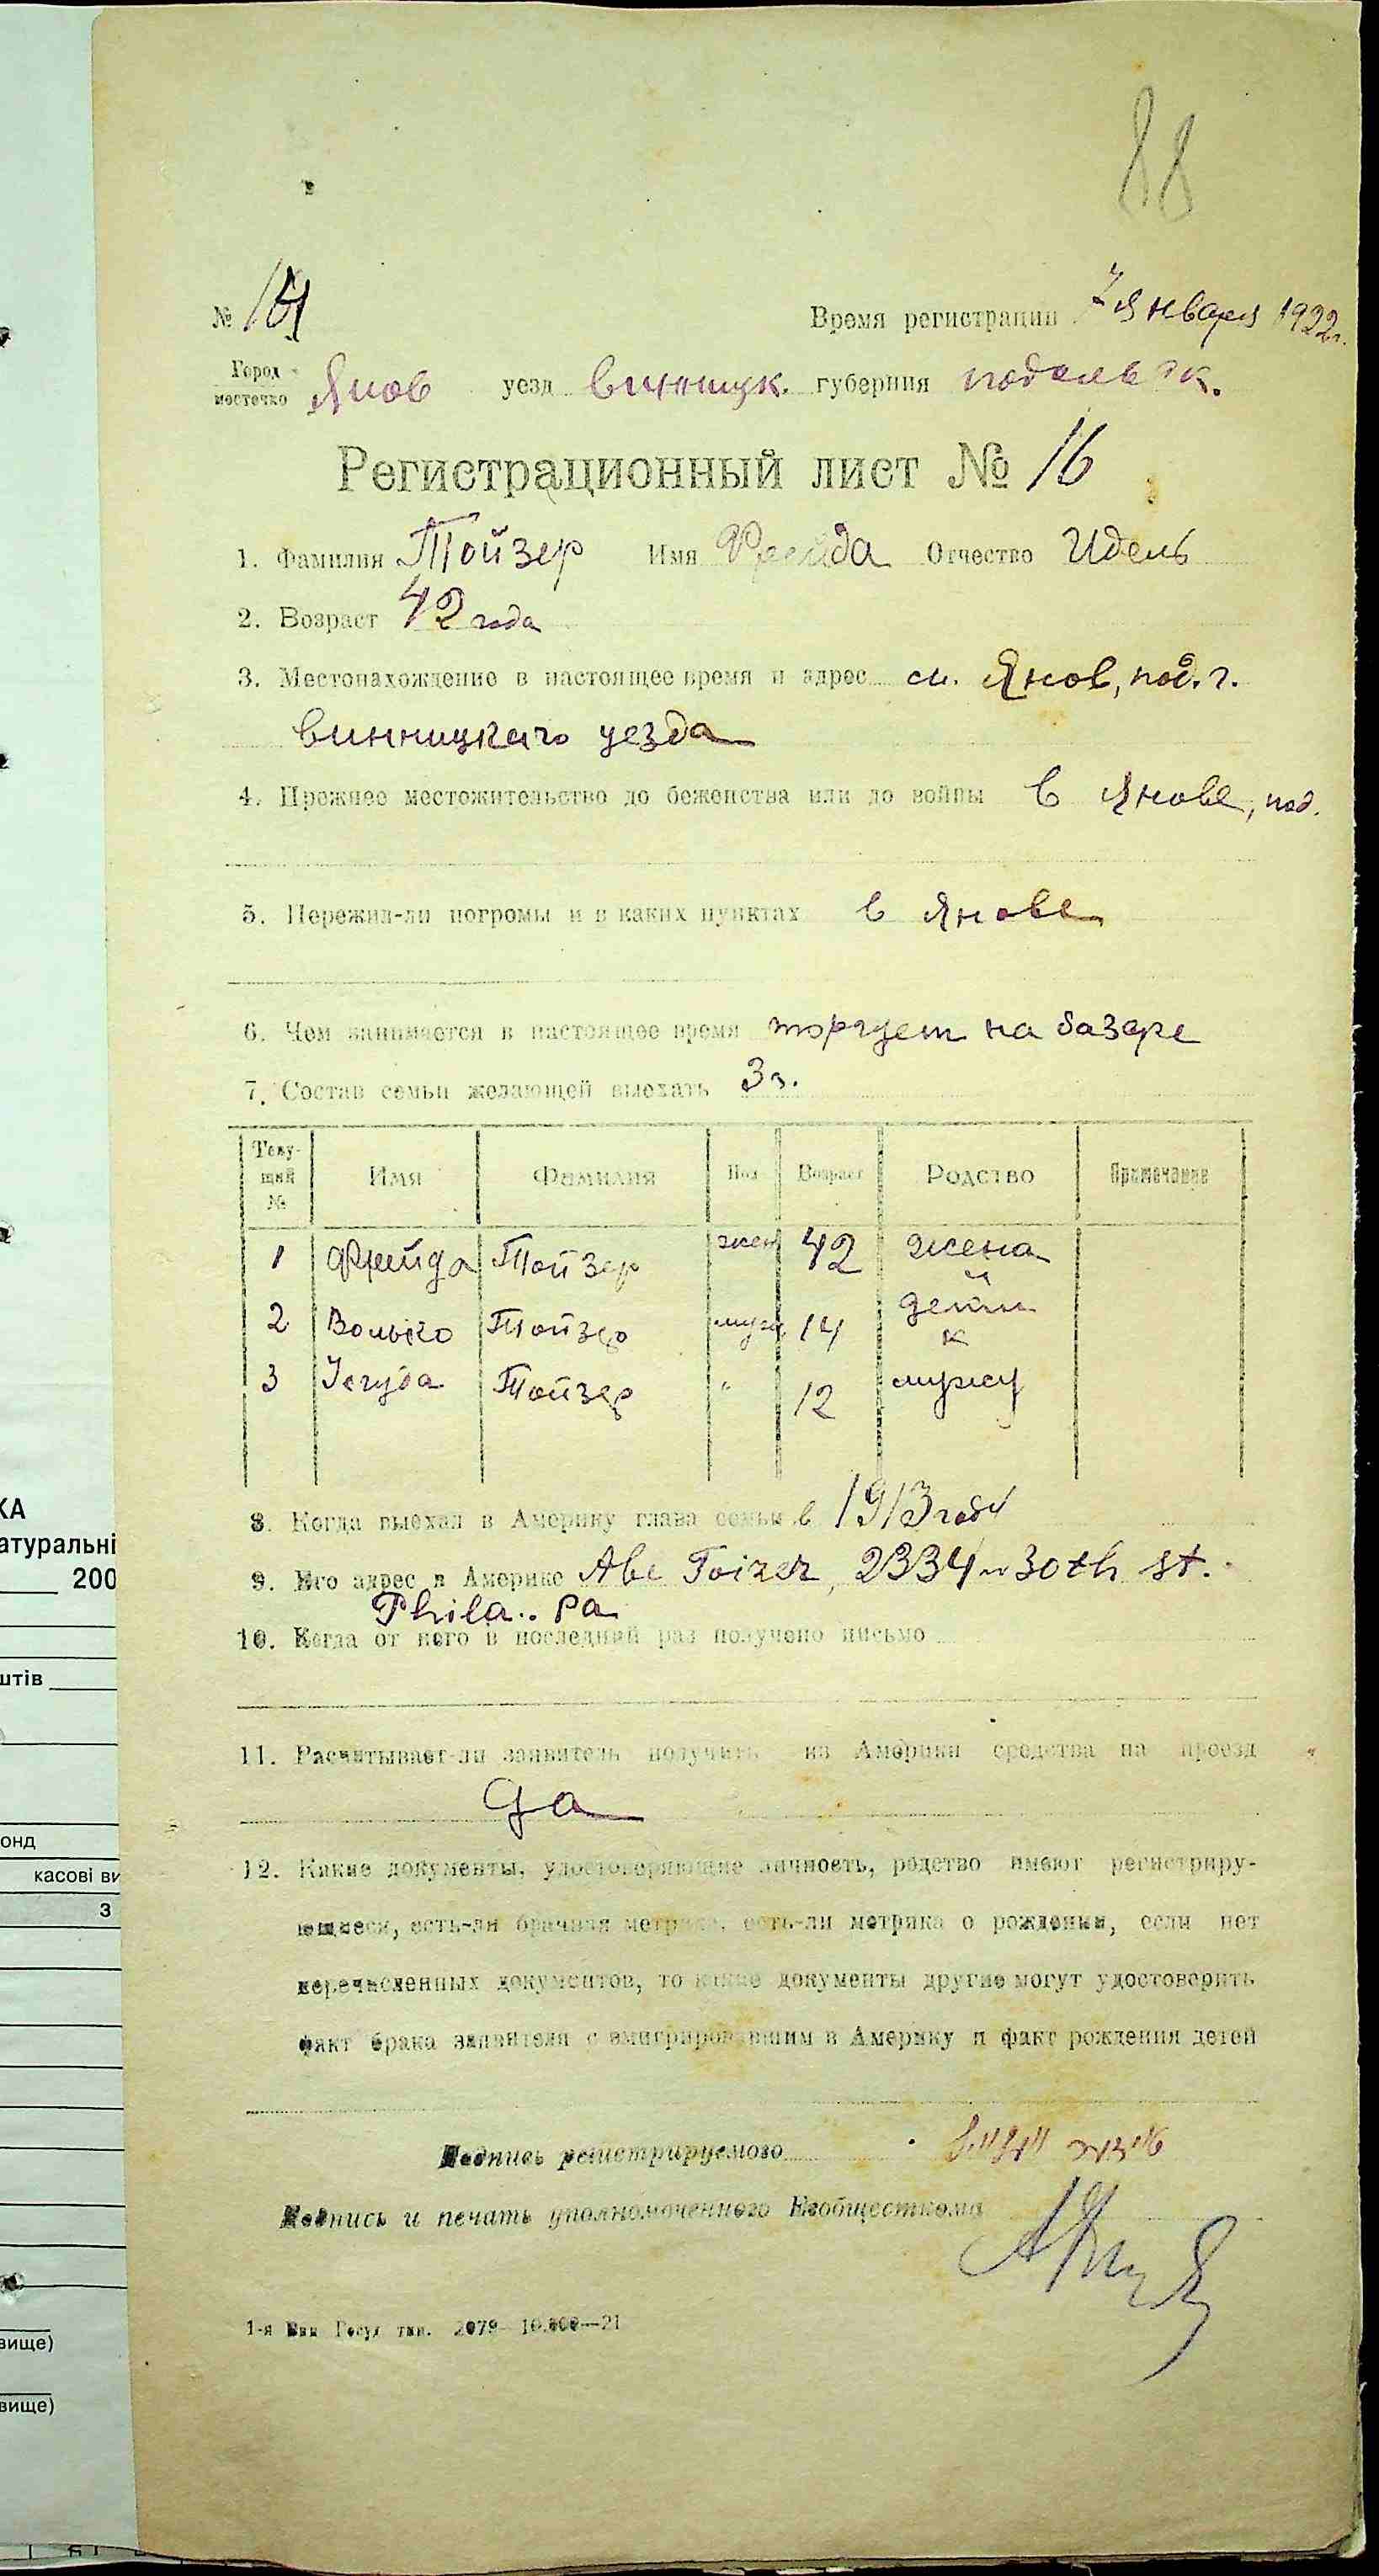 88
№ 181 Время регистрации 7 января 1922г.
Город местечко Янов уезд винницк. губерния подольск.
Регистрационный лист № 16
1. Фамилия Тойзер Имя Фрейда Отчество Идель
2. Возраст 42 года
3. Местонахождение в настоящее время и адрес м. Янов, под. г.
винницкаго уезда
4. Прежнее местожительство до беженства или до войны в Янове, под.
5. Пережил-ли погромы и в каких пунктах в Янове
6. Чем занимается в настоящее время торгует на базаре
7. Состав семьи желающей выехать 3
Теку-
щий
№ Имя Фамилия Пол Возраст Родство Примечание
1 Фрейда Тойзер жен 42 жена
и
2 Волько Тойзер муж 14 дети
к
3 Iегуда Тойзер " 12 мужу
8. Когда выехал в Америку глава семьи в 1913 году
9. Его адрес в Америке Abe Toizer, 2334 n 30th st.
Phila.. Pa
10. Когда от него в последний раз получено письмо
11. Расчитывает-ли заявитель получить из Америки средства на проезд
Да
12. Какие документы, удостоверяющие личность, родство имеют регистриру-
ющиеся, есть-ли брачная метрика, есть-ли метрика о рождении, если нет
перечисленных документов, то какие документы другие могут удостоверить
факт брака заявителя с эмигрировавшим в Америку и факт рождения детей
Подпись регистрируемого
Подпись и печать уполномоченного Евобщесткома
1-я Вин Госуд тип. 2079—10.000—21
КА
атуральні
200
штів
онд
касові ви
3
звище)
звище)